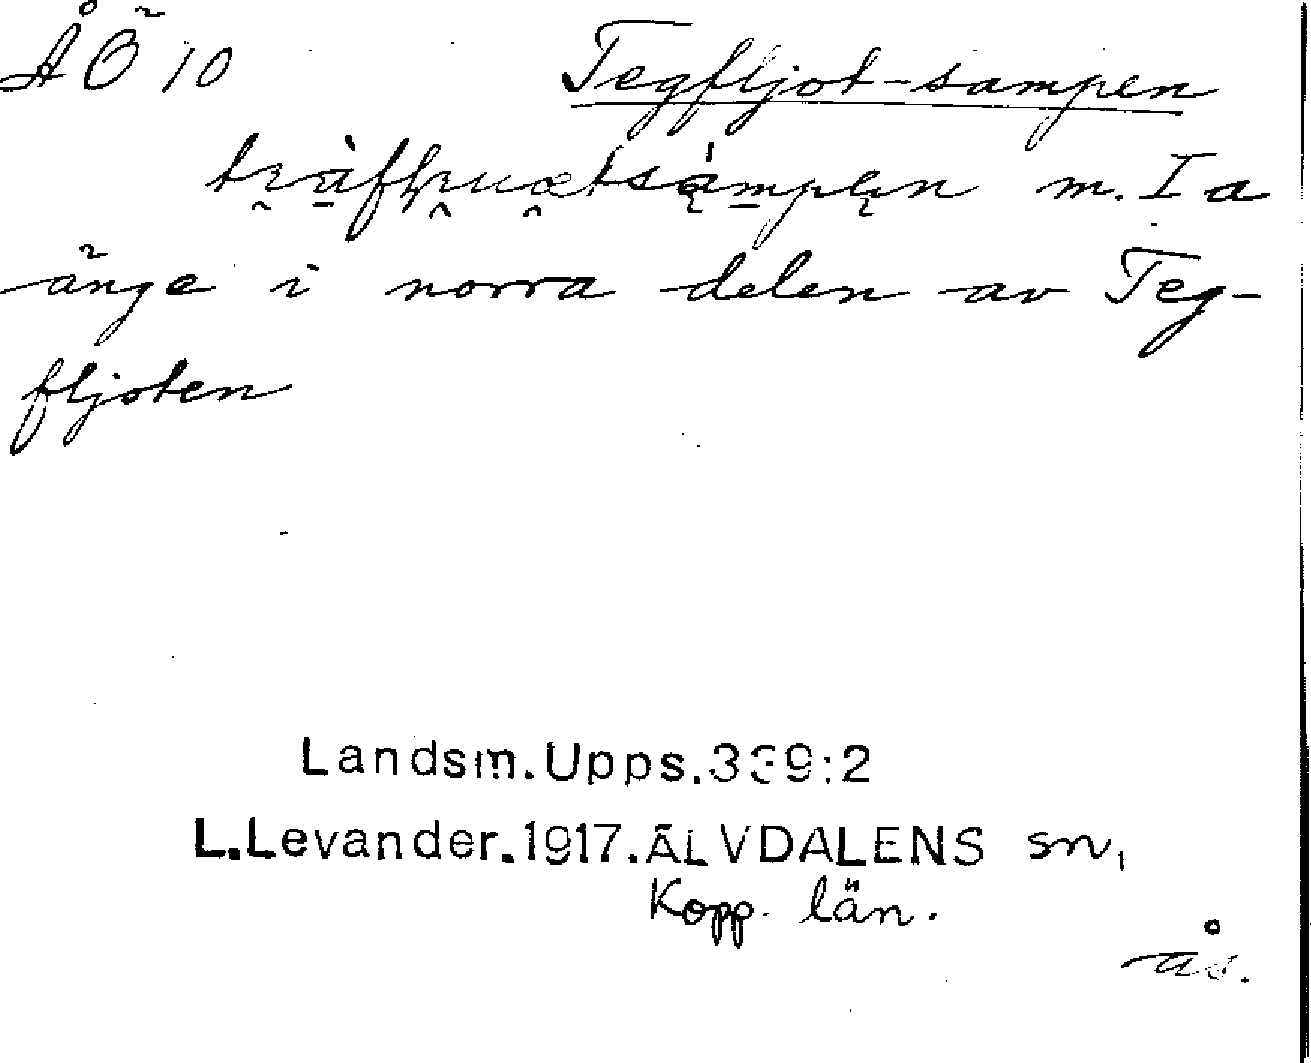 ÅÖ 10 Tegfljot-sampen
m. I a
änge i norra delen av Teg-
fljoten
Landsm. Upps. 339:2
L. Levander. 1917. ÄLVDALENS sn,
Kopp. län.
ås.